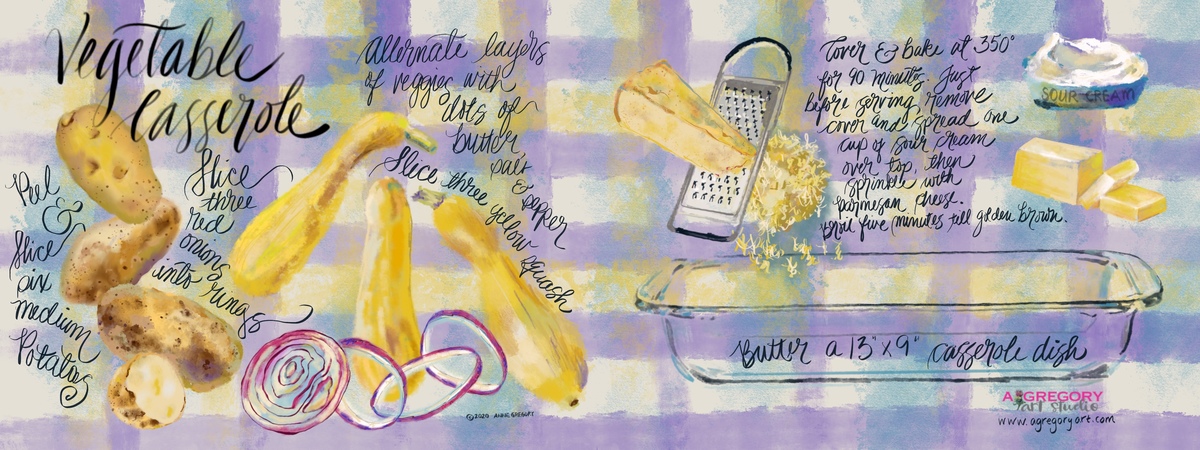 Vegetable
Casserole
Peel
&
Slice
six
medium
Potatoes
Slice
three
red
onions
into rings
Alternate layers
of veggies with
dots of
butter
salt
&
pepper
Slice three yellow squash
©2020 ANNE GREGORY
Cover & bake at 350°
for 90 minutes. Just
before serving remove
cover and spread one
cup of sour cream
over top, then
sprinkle with
parmesan cheese.
Broil five minutes till golden brown.
SOUR CREAM
Butter a 13" x 9" casserole dish
A. GREGORY
art studio
www.agregoryart.com